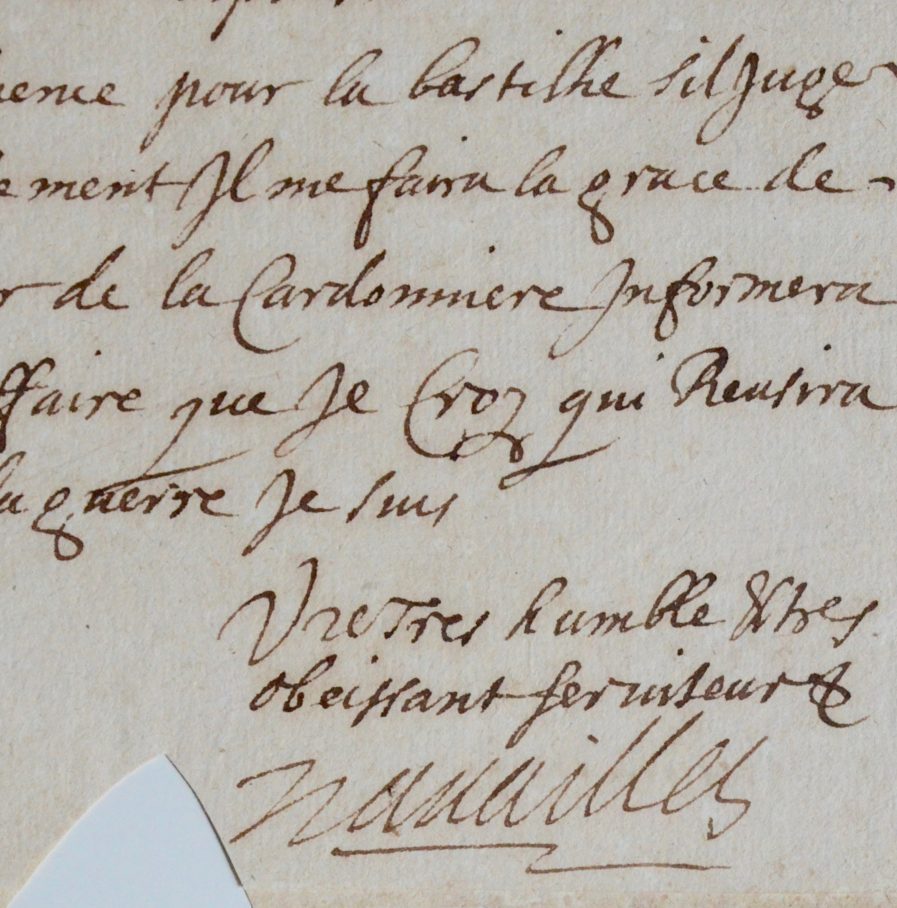 pour la bastilhe sil Juge
ment Il me faira la grace de
r de la Cardonniere Informera
ffaire que Je Croy qui Reusira
la guerre Je suis
Vre Tres humble & tres
obeissant serviteur &
Navailles